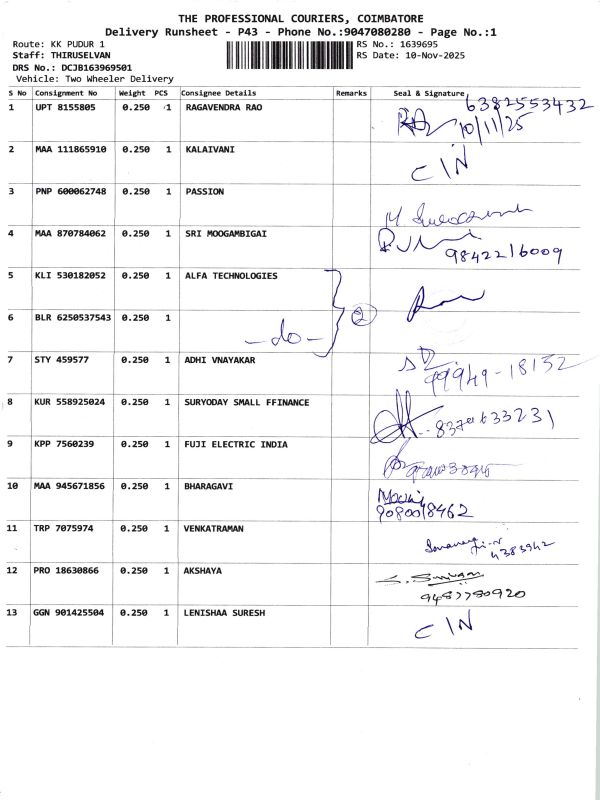 THE PROFESSIONAL COURIERS, COIMBATORE
Delivery Runsheet - P43 - Phone No.:9047080280 - Page No.:1
Route: KK PUDUR 1 RS No.: 1639695
Staff: THIRUSELVAN RS Date: 10-Nov-2025
DRS No.: DCJB163969501
Vehicle: Two Wheeler Delivery
S No Consignment No Weight PCS Consignee Details Remarks Seal & Signature
1 UPT 8155805 0.250 1 RAGAVENDRA RAO 6382553432
10/11/25
2 MAA 111865910 0.250 1 KALAIVANI
C/N
3 PNP 600062748 0.250 1 PASSION
4 MAA 870784062 0.250 1 SRI MOOGAMBIGAI
9842216009
5 KLI 530182052 0.250 1 ALFA TECHNOLOGIES
2
6 BLR 6250537543 0.250 1
-do-
7 STY 459577 0.250 1 ADHI VNAYAKAR
99949-18132
8 KUR 558925024 0.250 1 SURYODAY SMALL FFINANCE
9 KPP 7560239 0.250 1 FUJI ELECTRIC INDIA
10 MAA 945671856 0.250 1 BHARAGAVI
9080018462
11 TRP 7075974 0.250 1 VENKATRAMAN
12 PRO 18630866 0.250 1 AKSHAYA
9487780920
13 GGN 901425504 0.250 1 LENISHAA SURESH
C/N